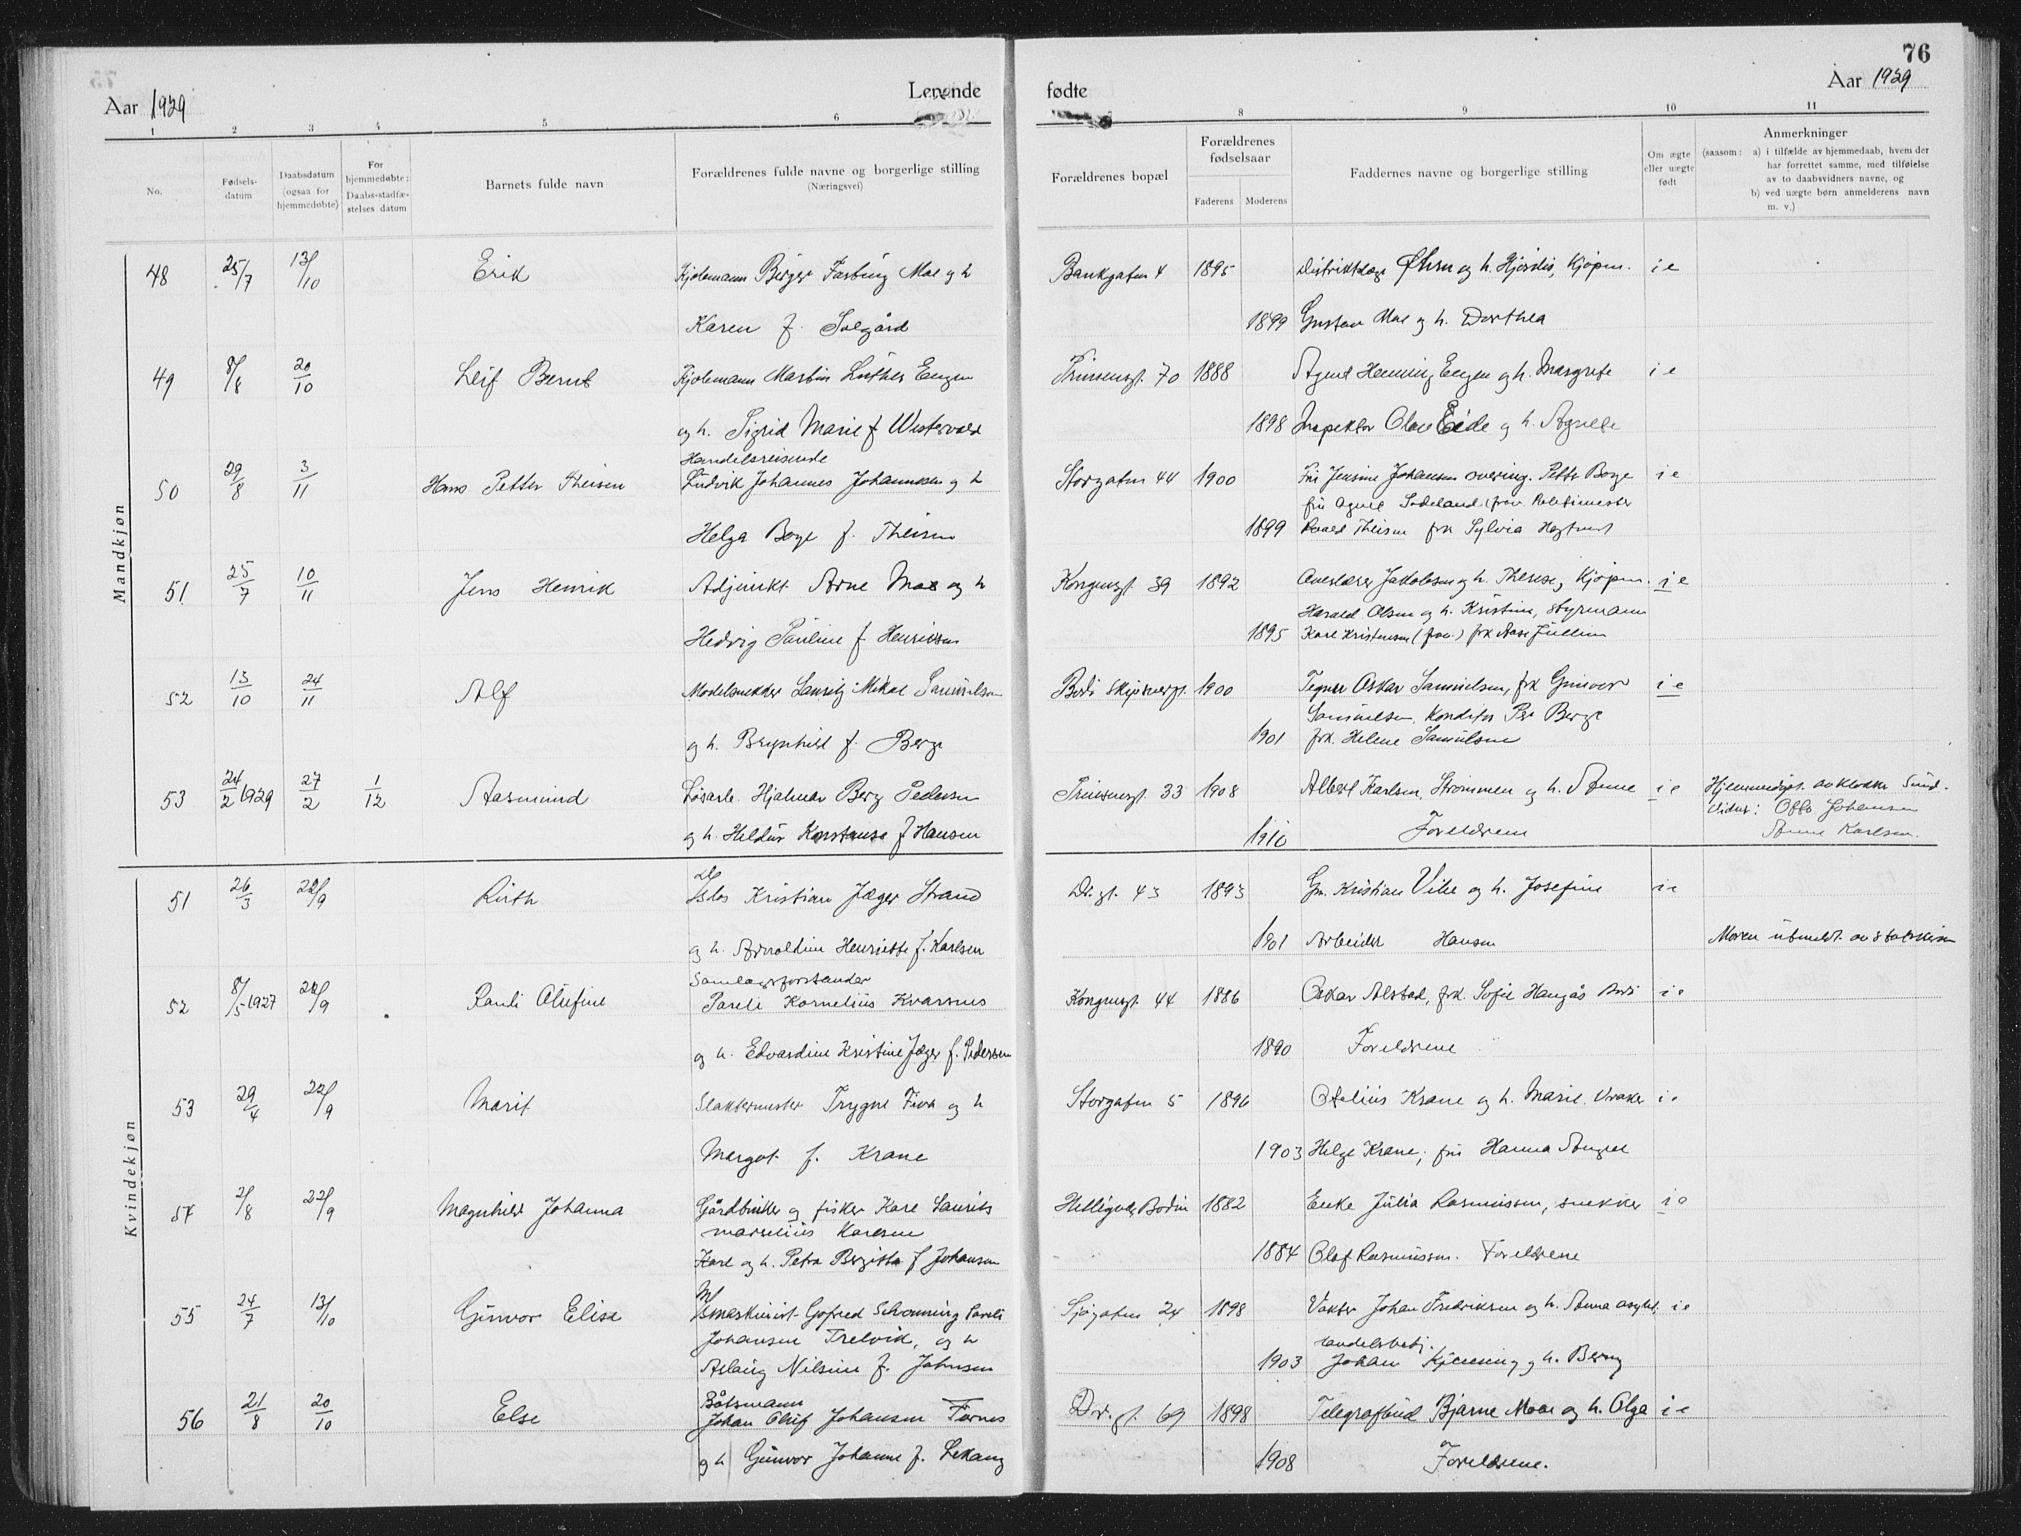 76
Aar 1929
Levende
fødte
Aar 1929
1 2 3 4 5 6
8 9 10 11
No.
Fødsels-
datum
Daabsdatum
(ogsaa for
hjemmedøbte)
For
hjemmedøbte:
Daabs-stadfæ-
stelses datum
Barnets fulde navn
Forældrenes fulde navne og borgerlige stilling
(Næringsvei)
Forældrenes bopæl
Forældrenes
fødselsaar
Faderens
Moderens
Faddernes navne og borgerlige stilling
Om ægte
eller uægte
født
Anmerkninger
(saasom: a) i tilfælde av hjemmedaab, hvem der
har forrettet samme, med tilføielse
av to daabsvidners navne, og
b) ved uægte børn anmelderens navn
m. v.)
Mandkjøn
48 25/7 13/10 Erik Kjøbmann Birger Fasting Moe og h Bankgaten 4 1895 Distriktslæge og h. Hjørdis, Kjøpm. i e
Karen f. Solgård 1899 Gustav Moe og h. Dorthea
49 8/8 20/10 Leif Bernt Kjøbmann Martin Luther Engen Prinsensgt. 70 1888 Agent Henning Engen og h. Margrete i e
og h. Sigrid Marie f Westervald 1898 Inspektør Olav Eide og h. Agnete
Handelsreisende
50 29/8 3/11 Hans Petter Theisen Ludvik Johannes Johannesen og h Storgaten 44 1900 Fru Jensine Johansen Petter Boye i e
fru Agnes Politimester
Helga Boye f. Theisen 1899 Roald Theisen frk Sylvia
51 25/7 10/11 Jens Henrik Adjunkt Arne Moe og h Kongensgt 39 1892 Overlærer Jakobsen og h. Therese, Kjøpm. i e
Harald Olsen og h. Kristine, styrmann
Hedvig Pauline f Henriksen 1895 Karl Kristensen (frav.) frk Aase Jullum
52 13/10 24/11 Alf Modelsnekker Lauritz Mikal Samuelsen Bodø 1900 Tegner Oskar Samuelsen, frk Gunvor i e
Samuelsen, Konditor Per Berge
og h. Brynhild f. Berge 1901 frk. Helene Samuelsen
53 24/2 1929 27/2 1/12 Aasmund Løsarb. Hjalmar Berg Pedersen Prinsensgt 33 1908 Albert Karlsen, Strømmen og h. Anne i e Hjemmedøpt av klokker Sund.
Vidner: Otto Johansen
og h. Heldur Konstanse f Hansen 1910 Foreldrene Anne Karlsen.
Kvindekjøn
51 26/3 22/9 Ruth Kristian Jæger Strand Dr. gt. 43 1893 Gm. Kristian Vibe og h. Josefine i e
og h. Arnoldine Henriette f. Karlsen 1901 Arbeider Hansen Moren utmeldt av statskirken
Samlagsforstander
52 8/5-1927 22/9 Randi Olufine Pareli Kornelius Kvarsnes Kongensgt 44 1886 Oskar Alstad, frk. Sofie Haugås Bodø i e
og h. Edvardine Kristine Jæger f. Pedersen 1890 Foreldrene
53 29/4 22/9 Marit Slaktermester Trygve Fiva og h Storgaten 5 1896 Otelius Krane og h. Marie. i e
Margot f. Krane 1903 Helge Krane, fru Hanna Angell
54 2/8 22/9 Magnhild Johanna Gårdbruker og fisker Karl Laurits Helligvær Bodin 1882 Enke Julia Rasmussen, snekker i e
Marselius Karlsen
Karl og h. Petra Bergitta f Johansen 1884 Olaf Rasmussen. Foreldrene
55 24/7 13/10 Gunvor Elise maskinist Gofred Schønning Pareli Sjøgaten 24 1898 Vakter Johan Fredriksen og h. Anna asylet. i e
Johansen Trelvik, og h handelsbetj.
Aslaug Nilsine f. Johnsen 1903 Johan Kjenning og h. Berny
Båtsmann
56 21/8 20/10 Else Johan Oluf Johansen Fornes Dr. gt. 69 1898 Telegrafbud Bjarne Moe og h. Olga i e
og h Gunvor Johanne f. Lekang 1908 Foreldrene.